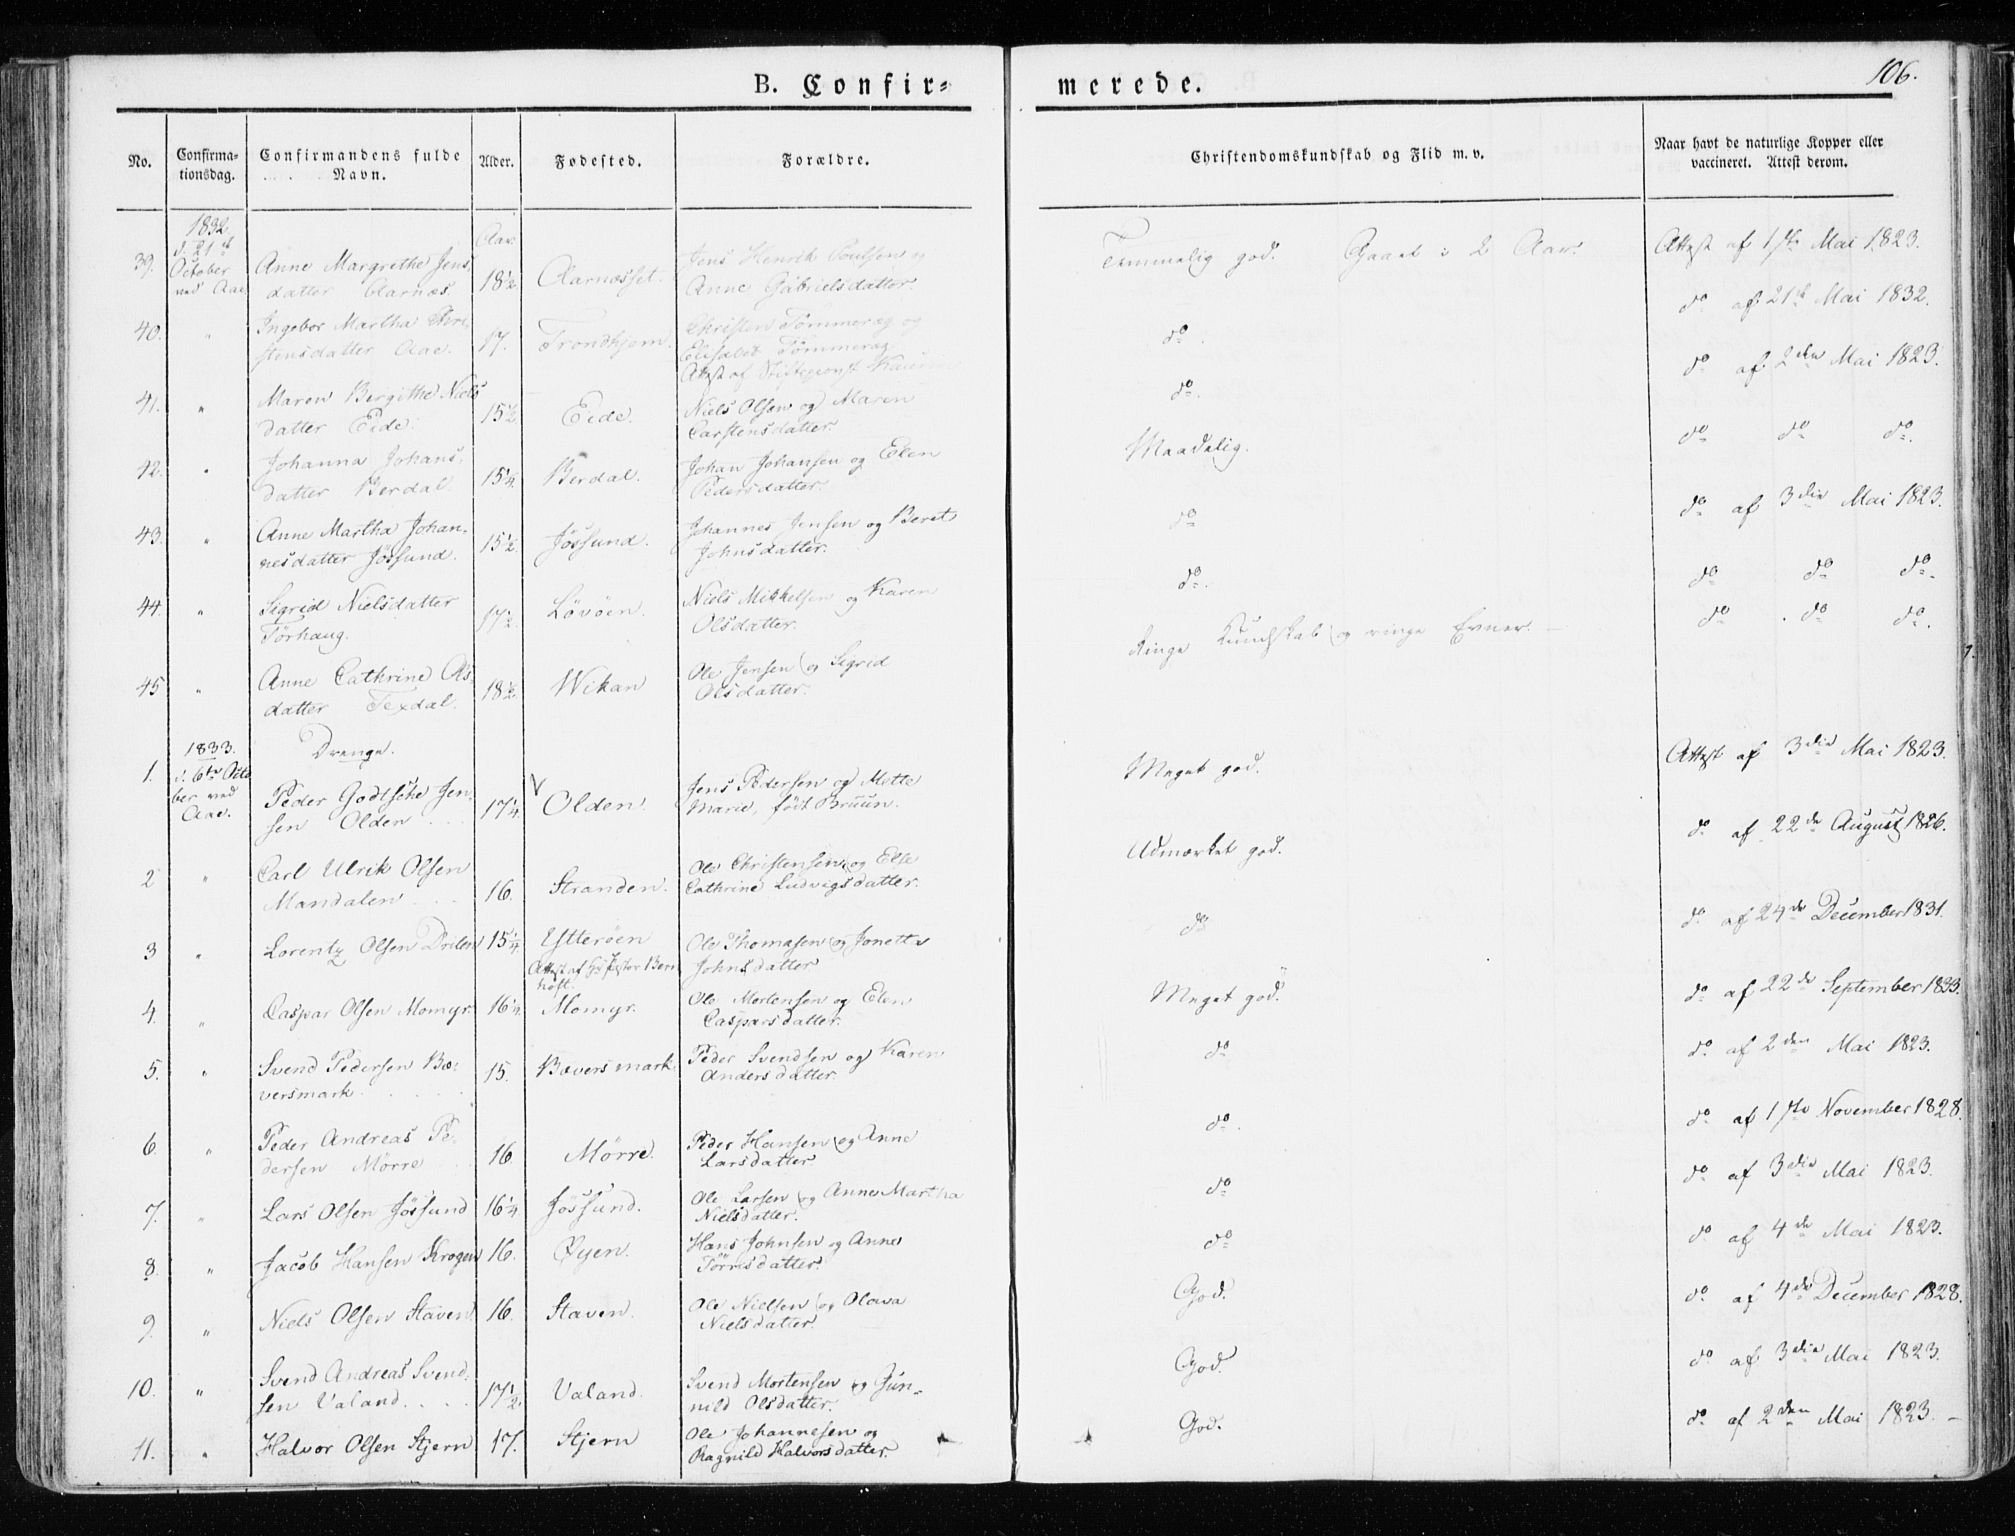 106.
B. Confir= merede.
No. Confirma-tionsdag. Confirmandens fulde Navn. Alder. Fødested. Forældre. Christendomskundskab og Flid m. v. Naar havt de naturlige Kopper eller vaccineret. Attest derom.
1832
d. 21de
October
ved Aae
Aar
39. Anne Margrethe Jens
datter Aarnæs. 18½ Aarnæsset. Jens Henrik Poulsen og
Anne Gabrielsdatter. Temmelig god. Gaaet i 2 Aar. Attest af 1ste Mai 1823.
40. " Ingebor Martha
stensdatter Aae. 17. Trondhjem. Christen Tømmeraz og
Elisabet Tømmeraz
Attest af Stiftsprovst do. do af 21de Mai 1832.
41. " Maren Bergithe Niels
datter Eide. 15½ Eide. Niels Olsen og Maren
Carstensdatter. do. do af 2den Mai 1823.
42. " Johanna Johans-
datter Berdal. 15¼ Berdal. Johan Johansen og Elen
Pedersdatter. Maadelig. do do do.
43. " Anne Martha Johan-
nesdatter Jøssund. 15½ Jøssund. Johannes Jensen og Beret
Johnsdatter. do do af 3die Mai 1823.
44. " Sigrid Nielsdatter
Tørhaug. 17½ Løvøen. Niels Mikkelsen og Karen
Olsdatter. do. do do do.
45 " Anne Cathrine Ols
datter Texdal. 18½ Wikan Ole Jensen og Sigrid
Olsdatter. Ringe Kundskab og ringe Evner. — do . do do.
1833.
d. 6te Octo
ber ved
Aae.
Drenge.
1. Peder Godtsche Jen-
sen Olden . . . 17¼ V Olden. Jens Pedersen og Mette
Marie, født Bruun. Meget god. Attest af 3die Mai 1823.
2 " Carl Ulrik Olsen
Mandalen . . . 16. Stranden. Ole Christensen og Else
Cathrine Ludvigsdatter. Udmærket god. do af 22de August 1826.
3 " Lorentz Olsen Drilen 15¼ Estterøen
Attest af Hr Pastor Bern
hoft. Ole Thomasen og Jonetta
Johnsdatter do do af 24de December 1831.
4. " Caspar Olsen Momyr. 16½ Momyr. Ole Mortensen og Elen
Caspersdatter. Meget god. do af 22de September 1833.
5. " Svend Pedersen Bæ-
versmark . . . . 15. Bæversmark. Peder Svendsen og Karen
Andersdatter. do do af 2den Mai 1823.
6. " Peder Andreas Pe-
dersen Mørre 16. Mørre. Peder Hansen og Anne
Larsdatter. do. do af 1ste November 1828.
7. " Lars Olsen Jøssund 16¼ Jøssund. Ole Larsen og Anne Martha
Nielsdatter. do do af 3die Mai 1823.
8. " Jacob Hansen Krogen 16. Øyen. Hans Johnsen og Anne
Tørresdatter. do do af 4de Mai 1823.
9. " Niels Olsen Staven. 16. Staven. Ole Nielsen og Olava
Nielsdatter. God. do af 4de December 1828.
10. " Svend Andreas Svend-
sen Valand. . . . 17½ Valand. Svend Mortensen og Gun-
nild Olsdatter. God. do af 3die Mai 1823.
11. " Halvor Olsen Stjern 17. Stjern Ole Johannesen og
Ragnild Halvorsdatter. God. do af 2den Mai 1823. —